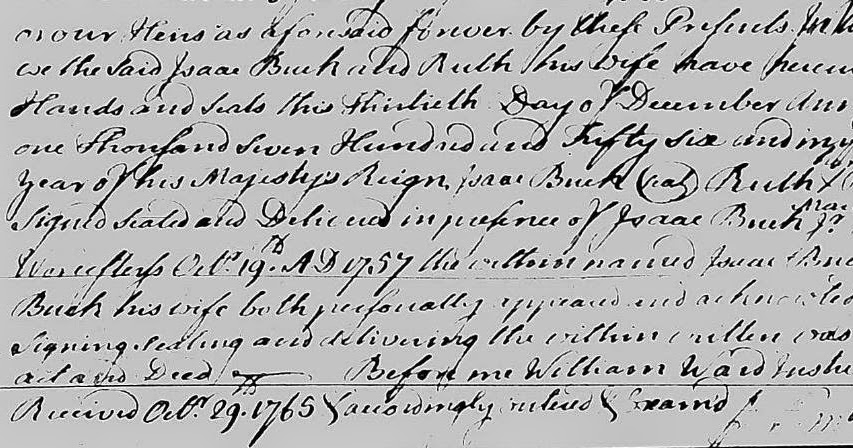 or our Heirs as aforesaid forever by these Presents In
we the Said Isaac Buck and Ruth his wife have
Hands and Seals this thirtieth Day of December
one Thousand Seven Hundred and Fifty six and in
Year of his Majestys Reign Isaac Buck (seal) Ruth
Signed Sealed and Delivered in presence of Isaac Buck Jr
Worcesterss Octr. 19th. AD 1757 the within named Isaac
Buck his wife both personally appeared and
Signing Sealing and delivering the within written was
act and Deed Before me William Ward
Received Octr. 29th. 1765 & accordingly entered & Examd